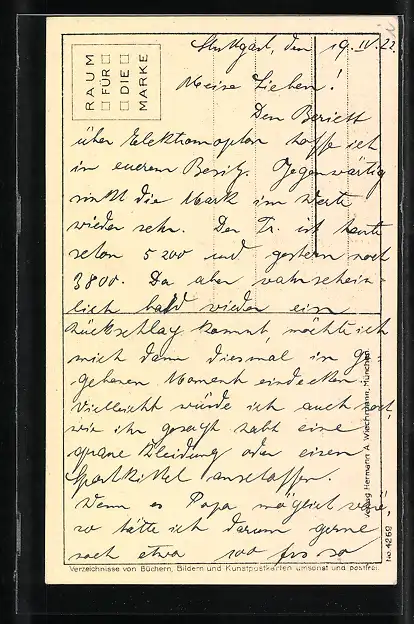 RAUM
FÜR
DIE
MARKE
Stuttgart, den 19. IV. 23.
Meine Lieben!
Den Bericht
über Elektromopton hoffe ich
in eurem Besitz. Gegenwärtig
sinkt die Mark im Werte
wieder sehr. Der Fr. ist heute
schon 5200 und gestern noch
3800. Da aber wahrschein-
lich bald wieder ein
Rückschlag kommt, möchte ich
mich dann diesmal im ge-
gebenen Moment eindecken.
Vielleicht würde ich auch noch,
wie ihr gesagt habt eine
graue Kleidung oder einen
Sportkittel anschaffen.
Wenn es Papa möglich wäre,
so hätte ich darum gerne
noch etwa 100 frs so
Verlag Hermann A. Wiechmann, München.
No 4269
Verzeichnisse von Büchern, Bildern und Kunstpostkarten umsonst und postfrei.